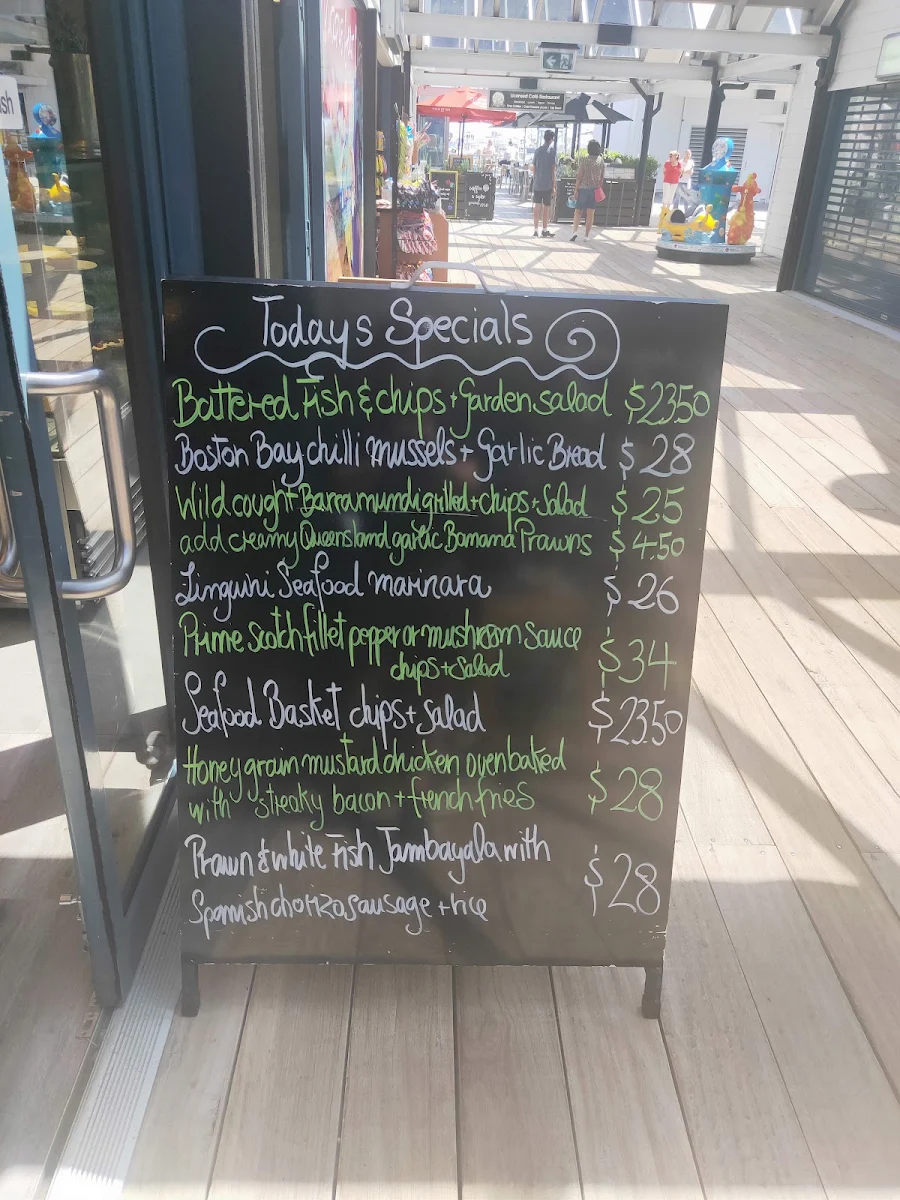 Licensed Café Restaurant
sh
Todays Specials
Battered Fish & chips + Garden salad $23.50
Boston Bay chilli mussels + Garlic Bread $28
Wild cought Barramumdi grilled + chips + Salad $25
add creamy Queensland garlic Banana Prawns $4.50
Linguini Seafood marinara $26
Prime Scotch fillet pepper or mushroom Sauce
chips + salad $34
Seafood Basket chips + Salad $23.50
Honey grain mustard chicken oven baked
with streaky bacon + french fries $28
Prawn & white Fish Jambayala with
Spanish chorizo sausage + rice $28